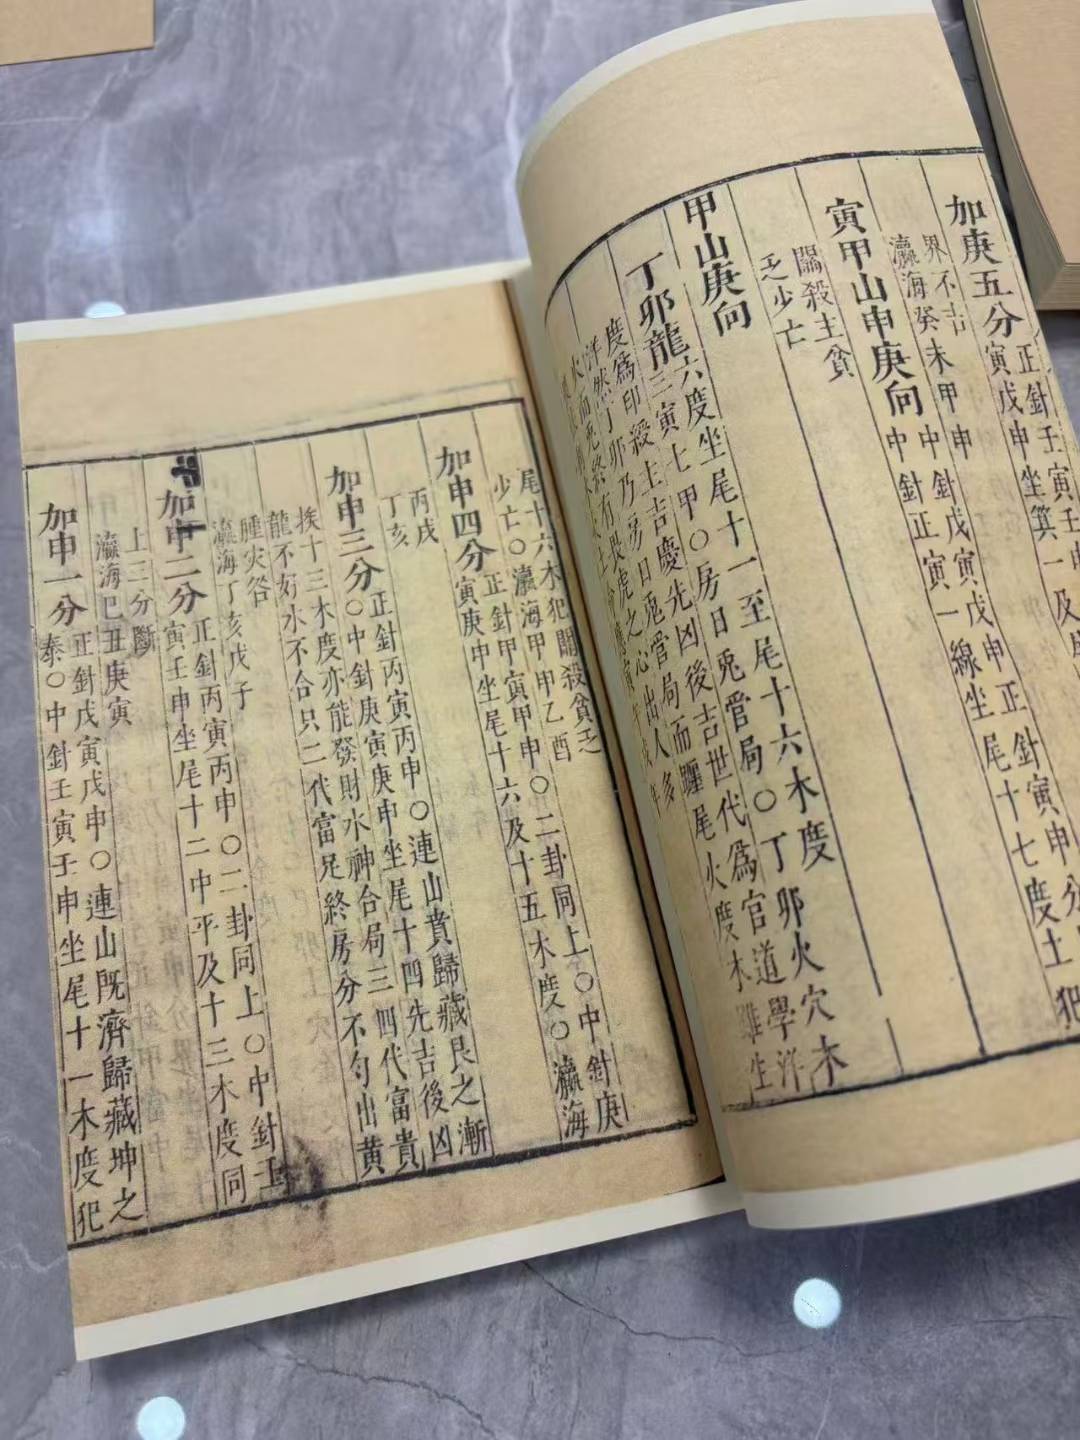 加庚五分
正針壬寅壬
寅戊申坐箕一及尾
界不吉
瀛海癸未甲申
寅甲山申庚向
中針戊寅戊申正針寅申分
中針正寅一線坐尾十七度土犯
關殺主貧
乏少亡
甲山庚向
丁卯龍
六度坐尾十一至尾十六木度
三寅七甲〇房日兎管局〇丁卯火穴木
度為印殺主吉慶先凶後吉世代為官道學洋
洋然丁卯乃房日兎管局而躔尾火度木雖生
火而死終有畏虎之心出人多
尾十六木犯關殺貧乏
少亡〇瀛海甲申乙酉
加申四分
正針甲寅甲申〇二卦同上〇中針庚
寅庚申坐尾十六及十五木度〇瀛海
丙戌
丁亥
加申三分
正針丙寅丙申〇連山賁歸藏艮之漸
〇中針庚寅庚申坐尾十四先吉後凶
挨十三木度亦能發財水神合局三四代富貴
龍不好水不合只二代富足終房分不勻出黃
腫灾咎
瀛海丁亥戊子
加申二分
正針丙寅丙申〇二卦同上〇中針壬
寅壬申坐尾十二中平及十三木度同
上三分斷
瀛海己丑庚寅
加申一分
正針戊寅戊申〇連山既濟歸藏坤之
泰〇中針壬寅壬申坐尾十一木度犯